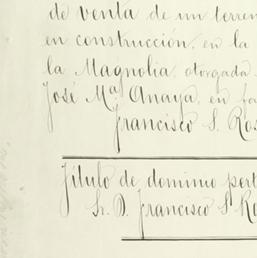 de venta de un terren
en construcción, en la
la Magnolia, otorgada
José Mª Anaya, en fa
Francisco S. Ros
Título de dominio pert
Sr. D. Francisco S. Ro